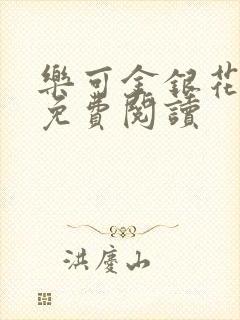 樂可金銀花
免費閱讀
洪慶山